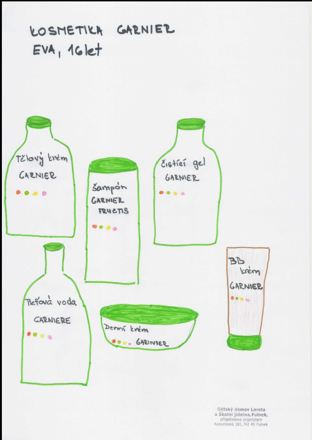 KOSMETIKA GARNIER
EVA, 16 let
Tělový krém
GARNIER
Šampón
GARNIER
FRUCTIS
Čistící gel
GARNIER
Pleťová voda
GARNIERE
Denní krém
GARINIER
BB
krém
GARNIER
Dětský domov Loreta
a Školní jídelna, Fulnek,
příspěvková organizace